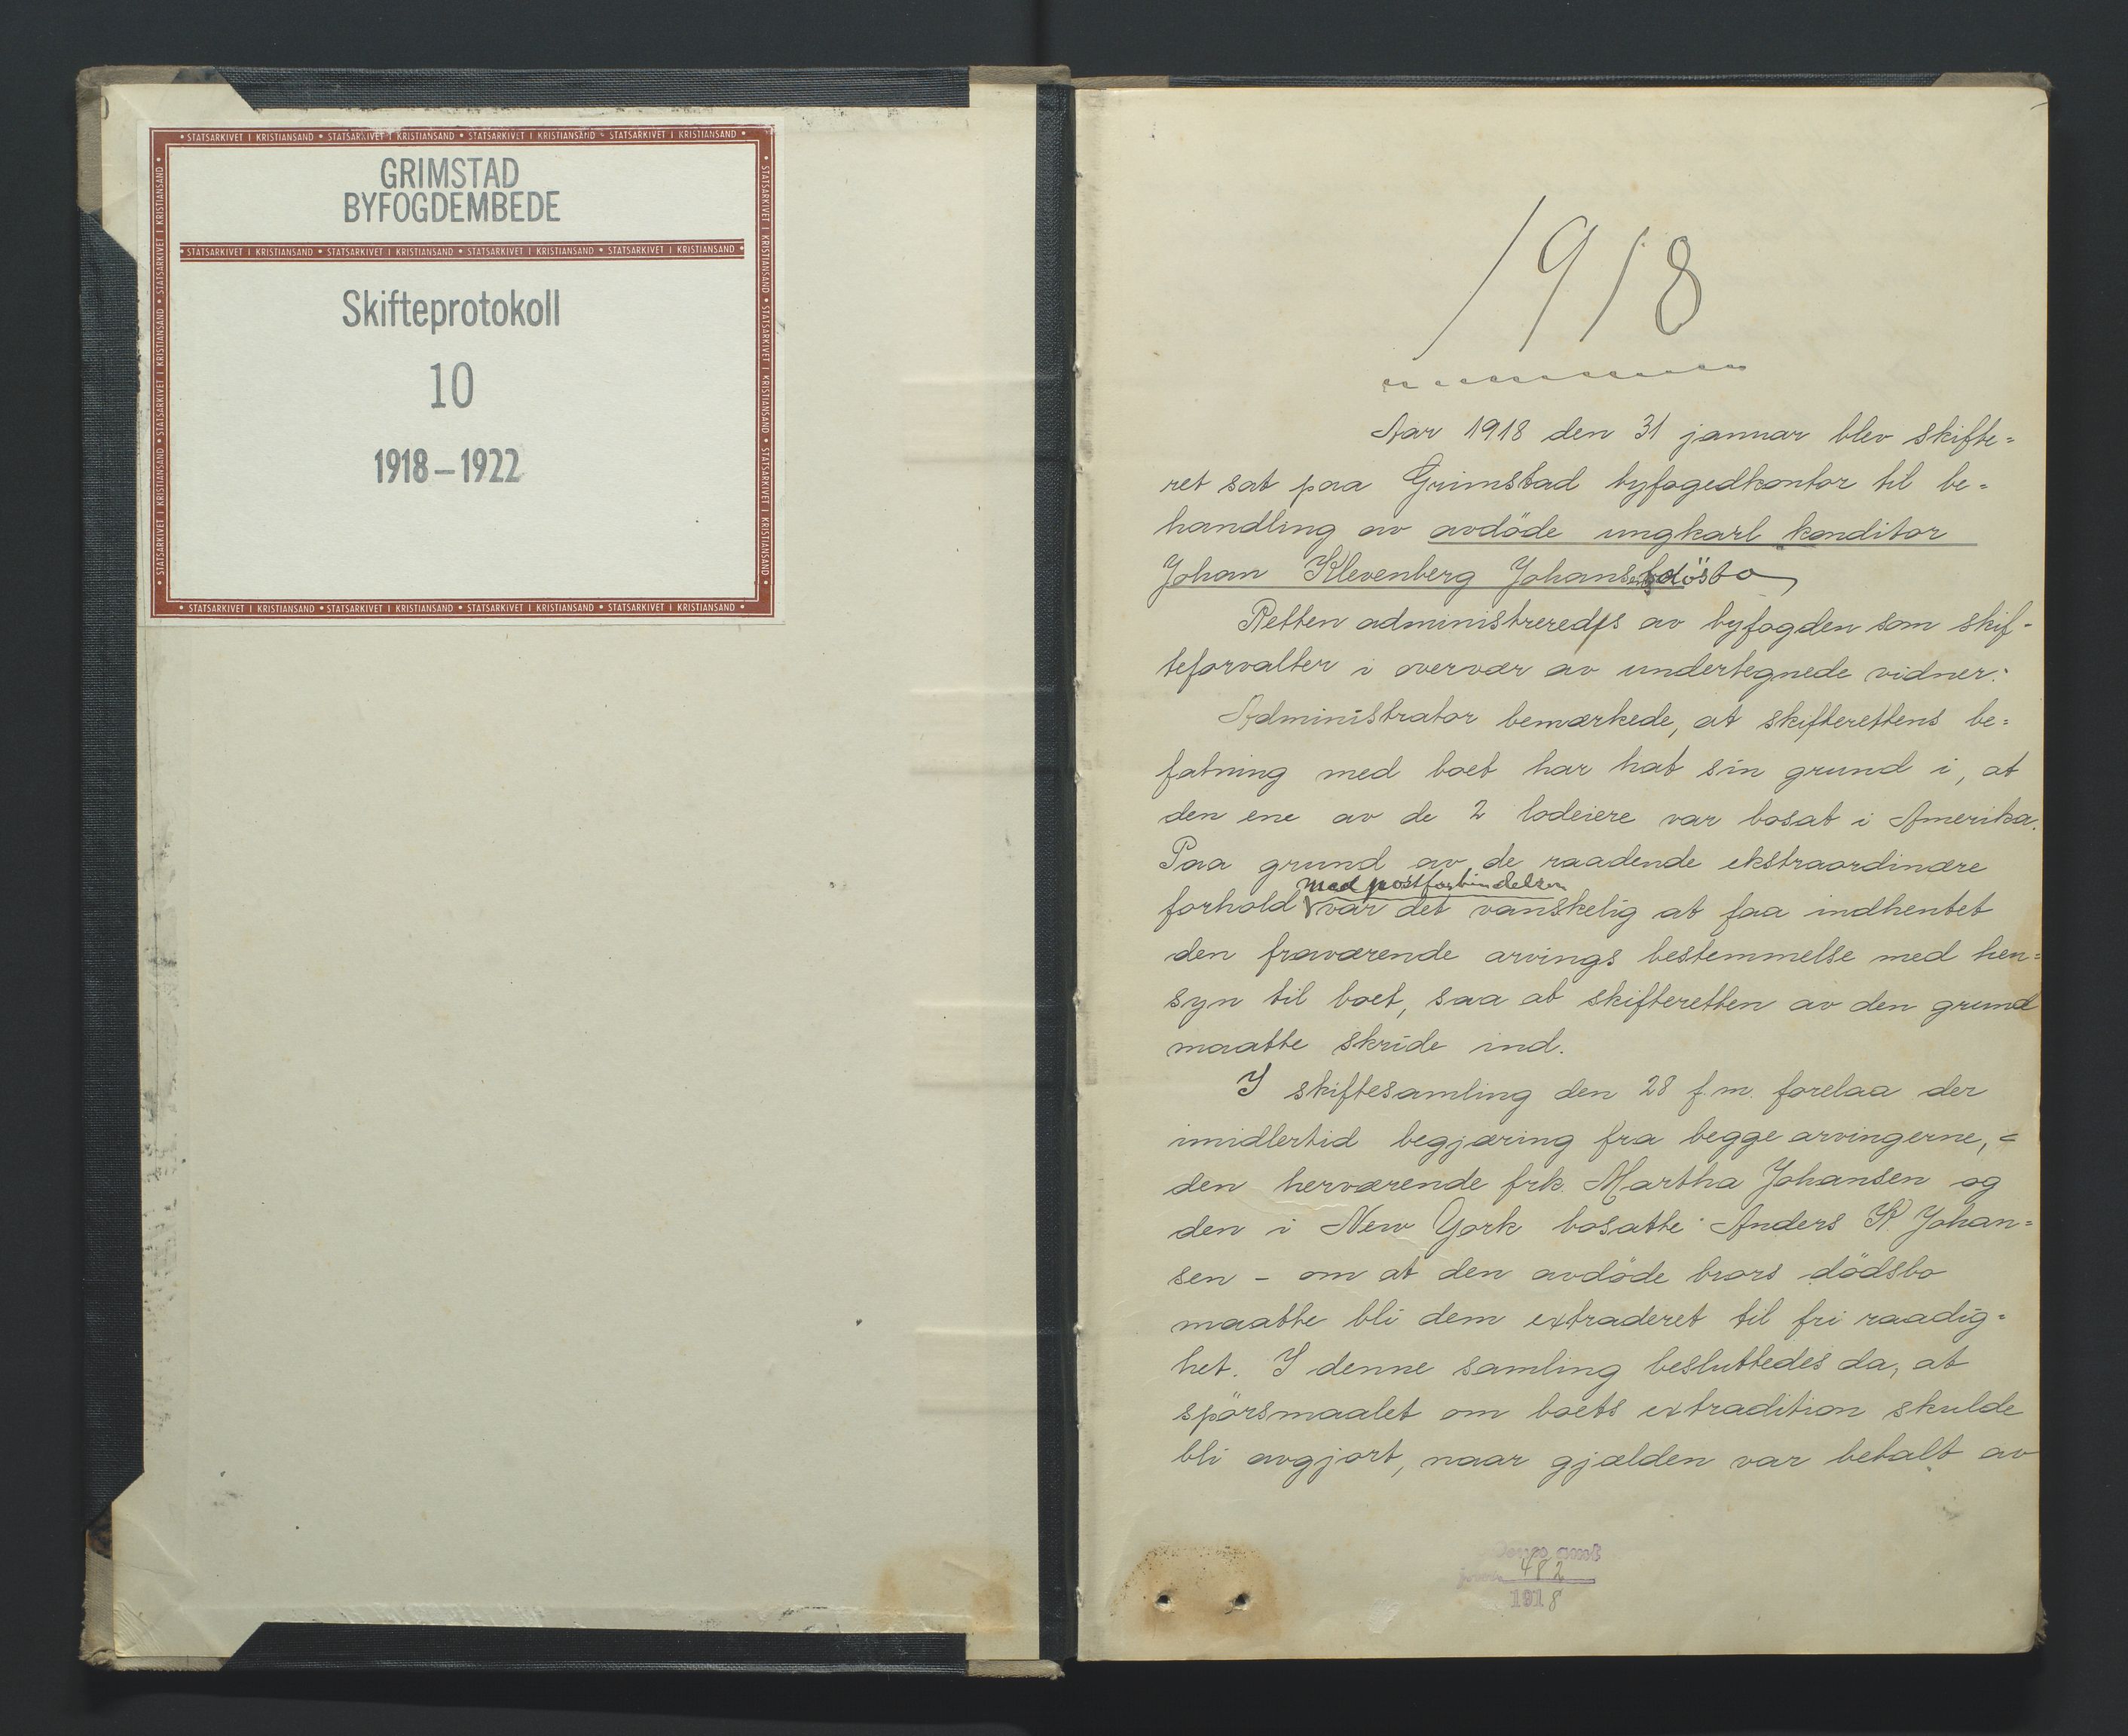 STATSARKIVET I KRISTIANSAND • STATSARKIVET I KRISTIANSAND • STATSARKIVET I KRISTIANSAND • STATSARKIVET I KRISTIANSAND
GRIMSTAD
BYFOGDEMBEDE
STATSARKIVET I KRISTIANSAND • STATSARKIVET I KRISTIANSAND • STATSARKIVET I KRISTIANSAND • STATSARKIVET I KRISTIANSAND
Skifteprotokoll
10
1918–1922
STATSARKIVET I KRISTIANSAND • STATSARKIVET I KRISTIANSAND • STATSARKIVET I KRISTIANSAND • STATSARKIVET I KRISTIANSAND
1918
Aar 1918 den 31 januar blev skifte=
ret sat paa Grimstad byfogedkontor til be=
handling av avdöde ungkarl konditor
Johan Klevenberg Johansens dösbo
Retten administreredes av byfogden som skif-
teforvalter i overvær av undertegnede vidner:
Administrator bemærkede, at skifterettens be=
fatning med boet har hat sin grund i, at
den ene av de 2 lodeiere var bosat i Amerika.
Paa grund av de raadende ekstraordinære
med postforbindelsen
forhold var det vanskelig at faa indhentet
den fraværende arvings bestemmelse med hen=
syn til boet, saa at skifteretten av den grund
maatte skride ind.
I skiftesamling den 28 f.m. forelaa der
imidlertid begjæring fra begge arvingerne, =
den herværende frk. Martha Johansen og
den i New York bosatte Anders K. Johan=
sen - om at den avdöde brors dödsbo
maatte bli dem extraderet til fri raadig=
het. I denne samling besluttedes da, at
spörsmaalet om boets extradition skulde
bli avgjort, naar gjælden var betalt av
482
1918